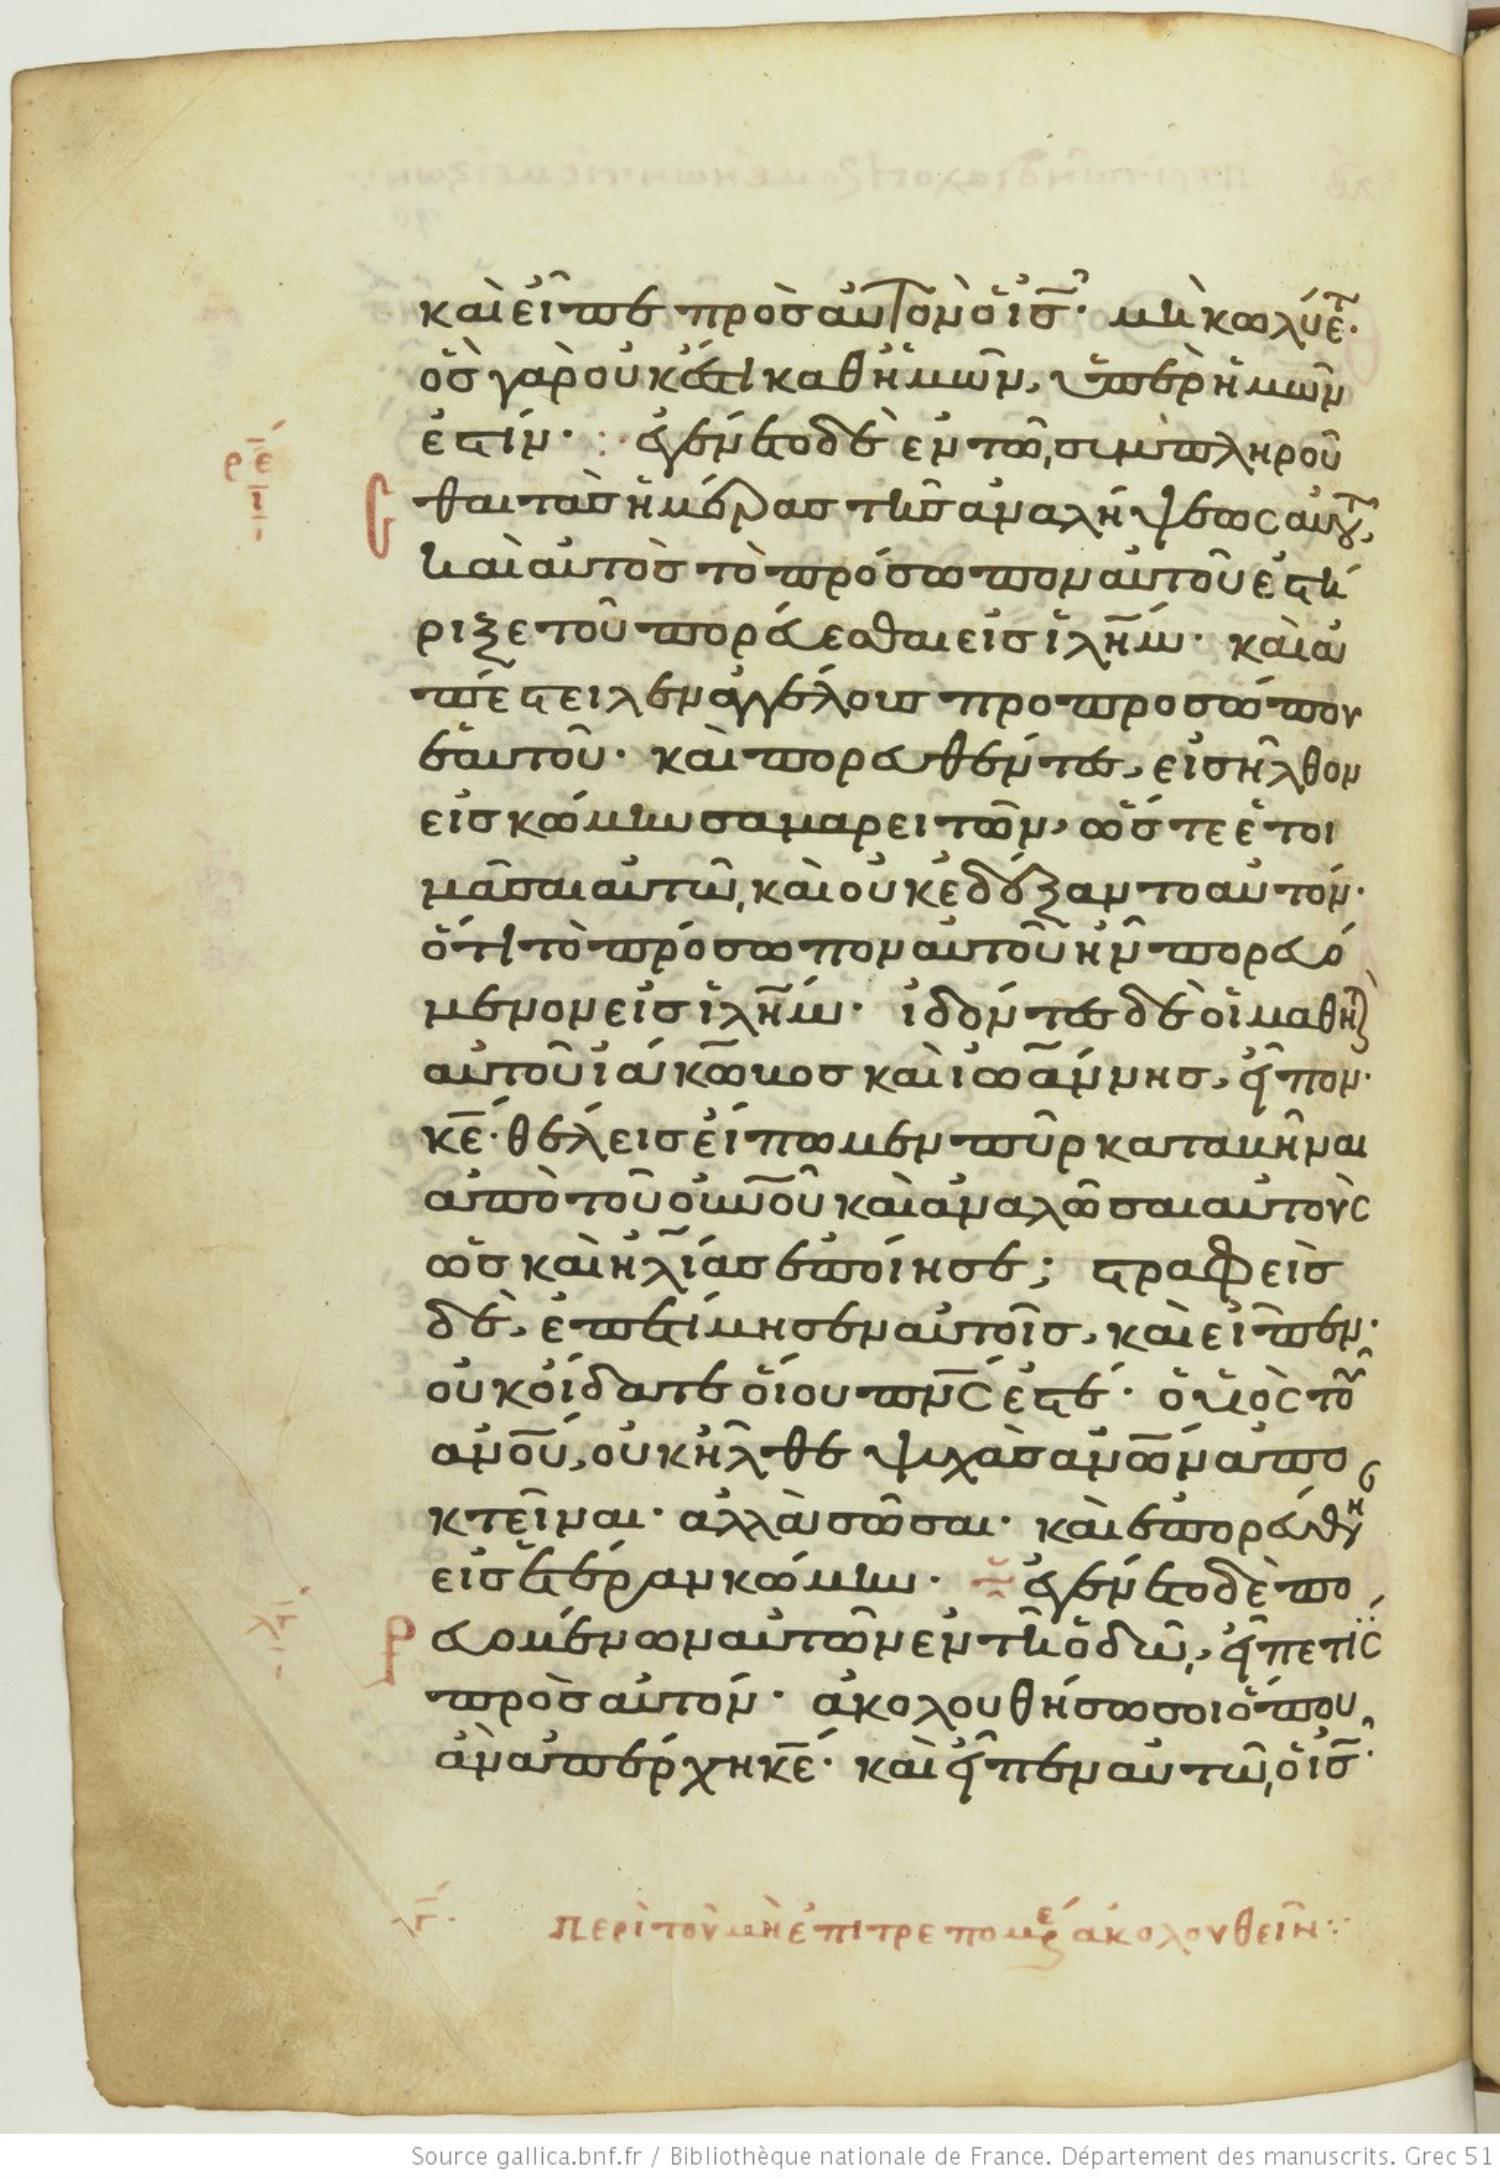 καὶ εἶπε πρὸς αὐτὸν ὁ ις̅· μὴ κωλύετ·
ὃς γὰρ οὐκ ἔστι καθ ἡμῶν, ὑπὲρ ἡμῶν
ἐστίν· ἐγένετο δὲ ἐν τῶ συμπληροῦ
ρε ι
σθαι τὰς ἡμέρας τῆς ἀναλήψεως αὐτου,
καὶ αὐτὸς τὸ πρόσωπον αὐτοῦ ἐστή
ριξε τοῦ πορεύεσθαι εἰς ιλημ· καὶ ἀ
πέστειλεν ἀγγέλους πρὸ προσώπου
ἑαυτοῦ· καὶ πορευθέντες, εἰσῆλθον
εἰς κώμην σαμαρειτῶν, ὥστε ἑτοι
μᾶσαι αὐτῶ, καὶ οὐκ ἐδέξαντο αὐτόν·
ὅτι τὸ πρόσωπον αὐτοῦ ἦν πορευό
μενον εἰς ιλημ· ἰδόντες δὲ οἱ μαθητ
αὐτοῦ ἰάκωβος καὶ ἰωάννης, εἶπον·
κε̅· θέλεις εἴπωμεν πῦρ καταβῆναι
ἀπὸ τοῦ ουνου καὶ ἀναλῶσαι αὐτοὺς
ὡς καὶ ἠλίας ἐποίησε; στραφεὶς
δὲ, ἐπετίμησεν αὐτοῖς, καὶ εἶπεν·
οὐκ οἴδατε οἵου πνς ἐστέ· ὁ υἱὸς τοῦ
ανου, οὐκ ἦλθε ψυχὰς ανων ἀπο
κτεῖναι· ἀλλὰ σῶσαι· καὶ ἐπορεύθησ
εἰς ἑτέραν κώμην· ἐγένετο δὲ πο
ρευομένων αὐτῶν ἐν τῆ ὁδῶ, εἶπέ τις
πρὸς αὐτόν· ἀκολουθήσω σοι ὅπου
ἂν ἀπέρχη κε̅· καὶ εἶπεν αὐτῶ, ὁ ις̅·
γ· περὶ τοῦ μὴ ἐπιτρεπομέν ἀκολουθεῖν